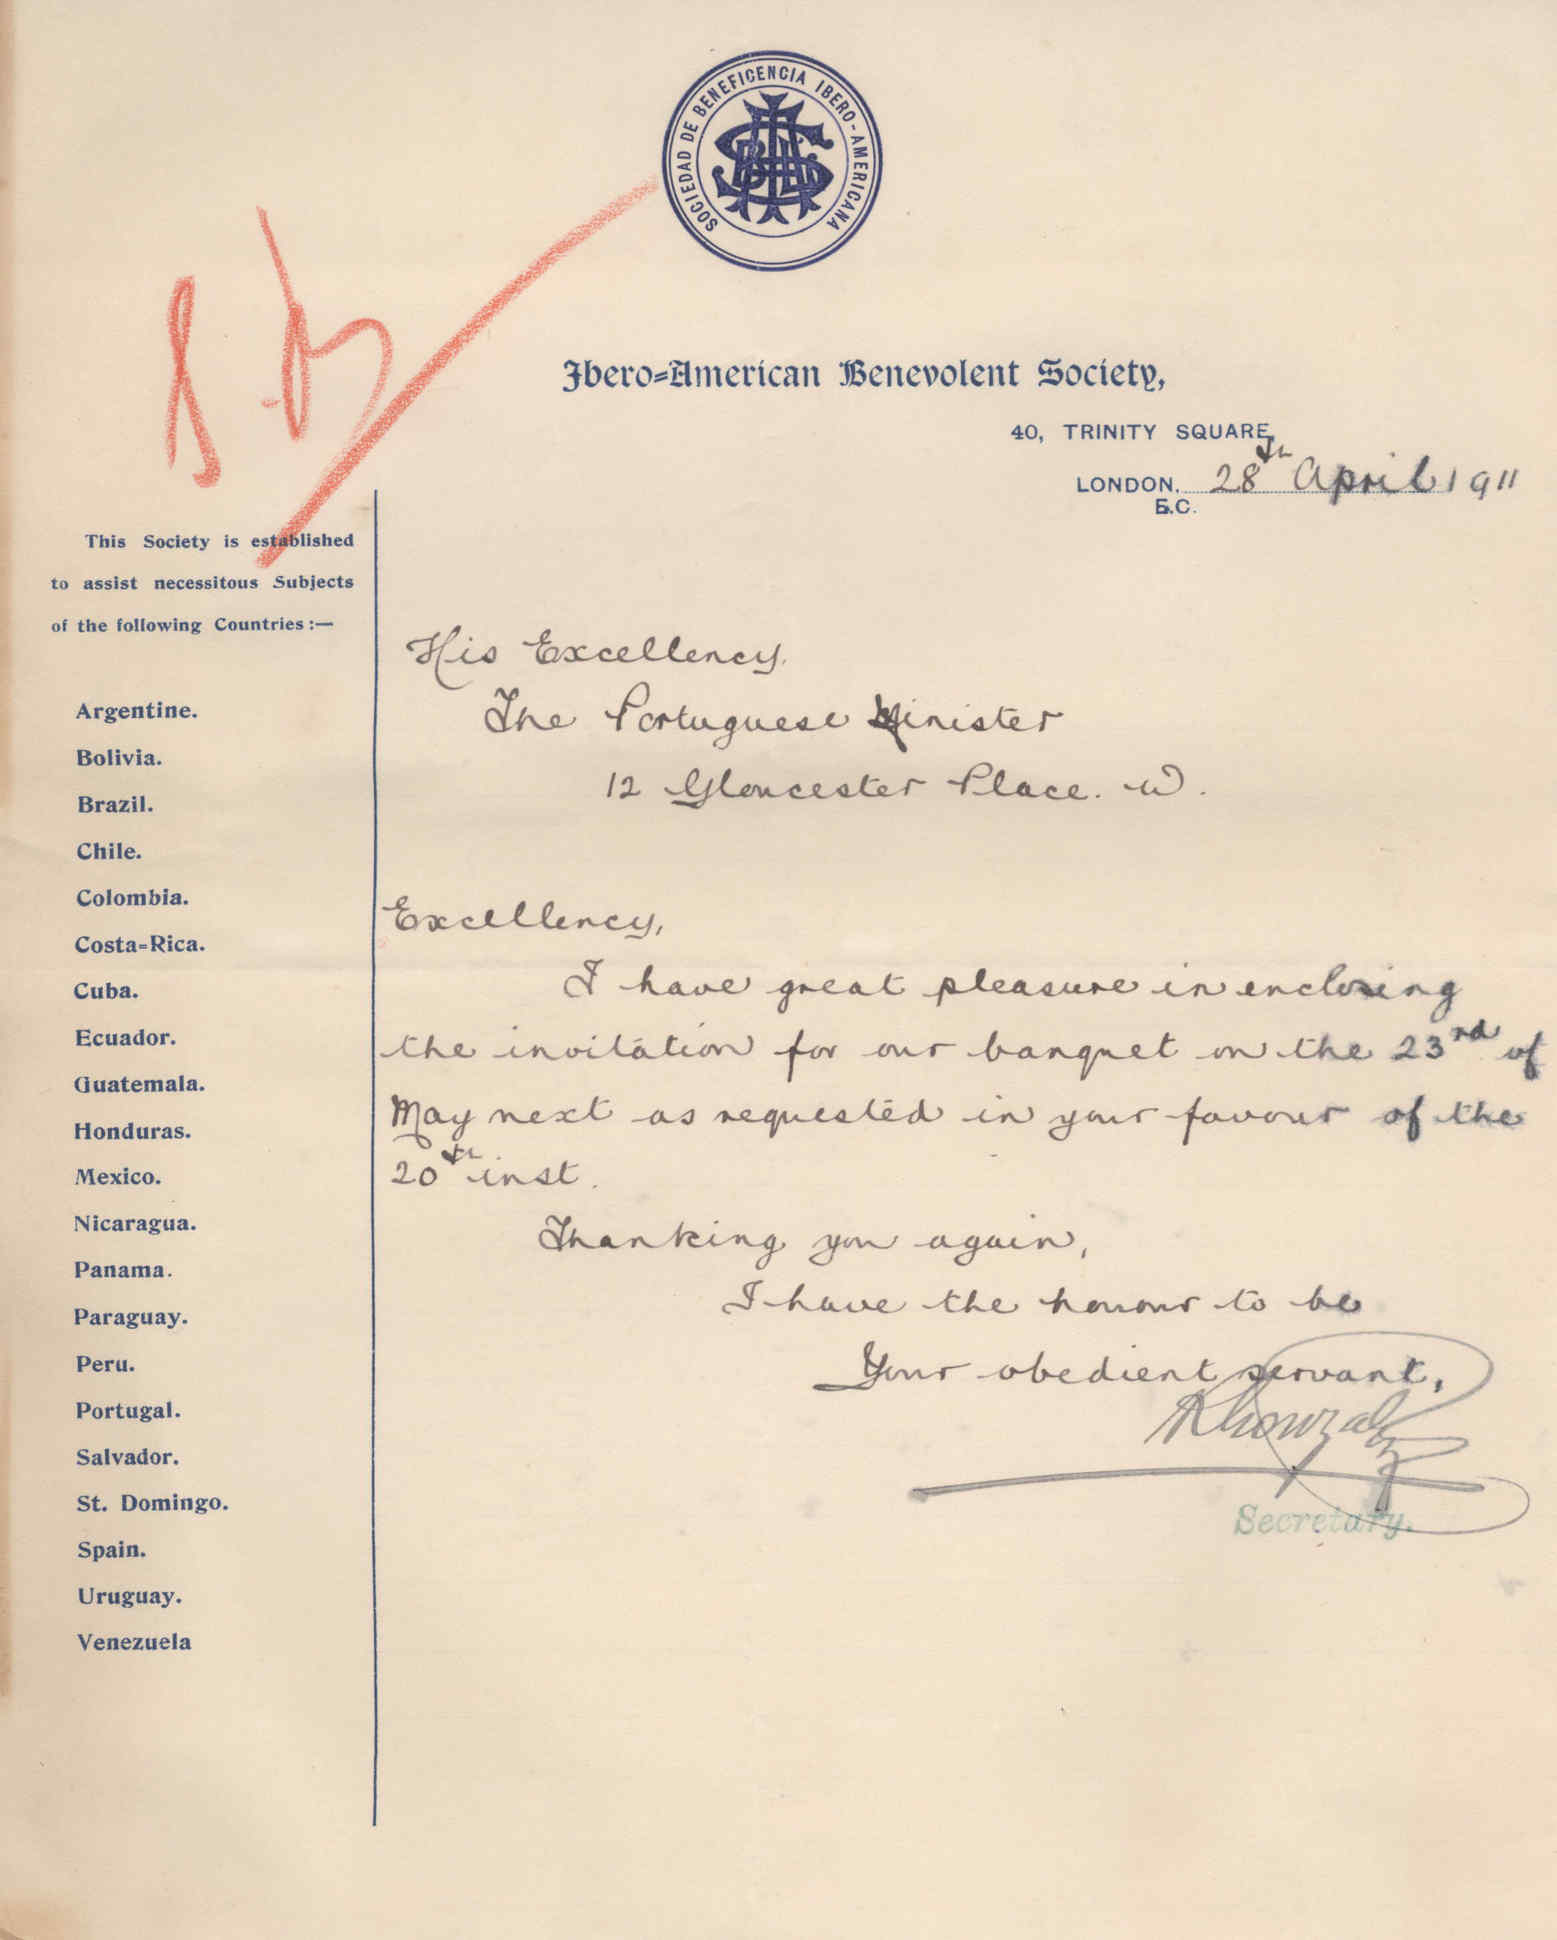 SOCIEDAD DE BENEFICENCIA IBERO-AMERICANA
Ibero=American Benevolent Society,
40, TRINITY SQUARE,
LONDON, 28th April 1911
E.C.
This Society is established
to assist necessitous Subjects
of the following Countries:—
Argentine.
Bolivia.
Brazil.
Chile.
Colombia.
Costa=Rica.
Cuba.
Ecuador.
Guatemala.
Honduras.
Mexico.
Nicaragua.
Panama.
Paraguay.
Peru.
Portugal.
Salvador.
St. Domingo.
Spain.
Uruguay.
Venezuela
His Excellency.
The Portuguese Minister
12 Gloucester Place. W.
Excellency,
I have great pleasure in enclosing
the invitation for our banquet on the 23rd of
May next as requested in your favour of the
20th inst.
Thanking you again,
I have the honour to be
Your obedient servant,
Secretary.